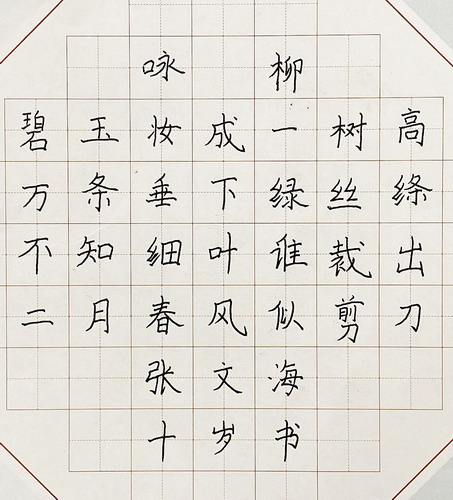 咏柳
碧玉妆成一树高
万条垂下绿丝绦
不知细叶谁裁出
二月春风似剪刀
张文海
十岁书